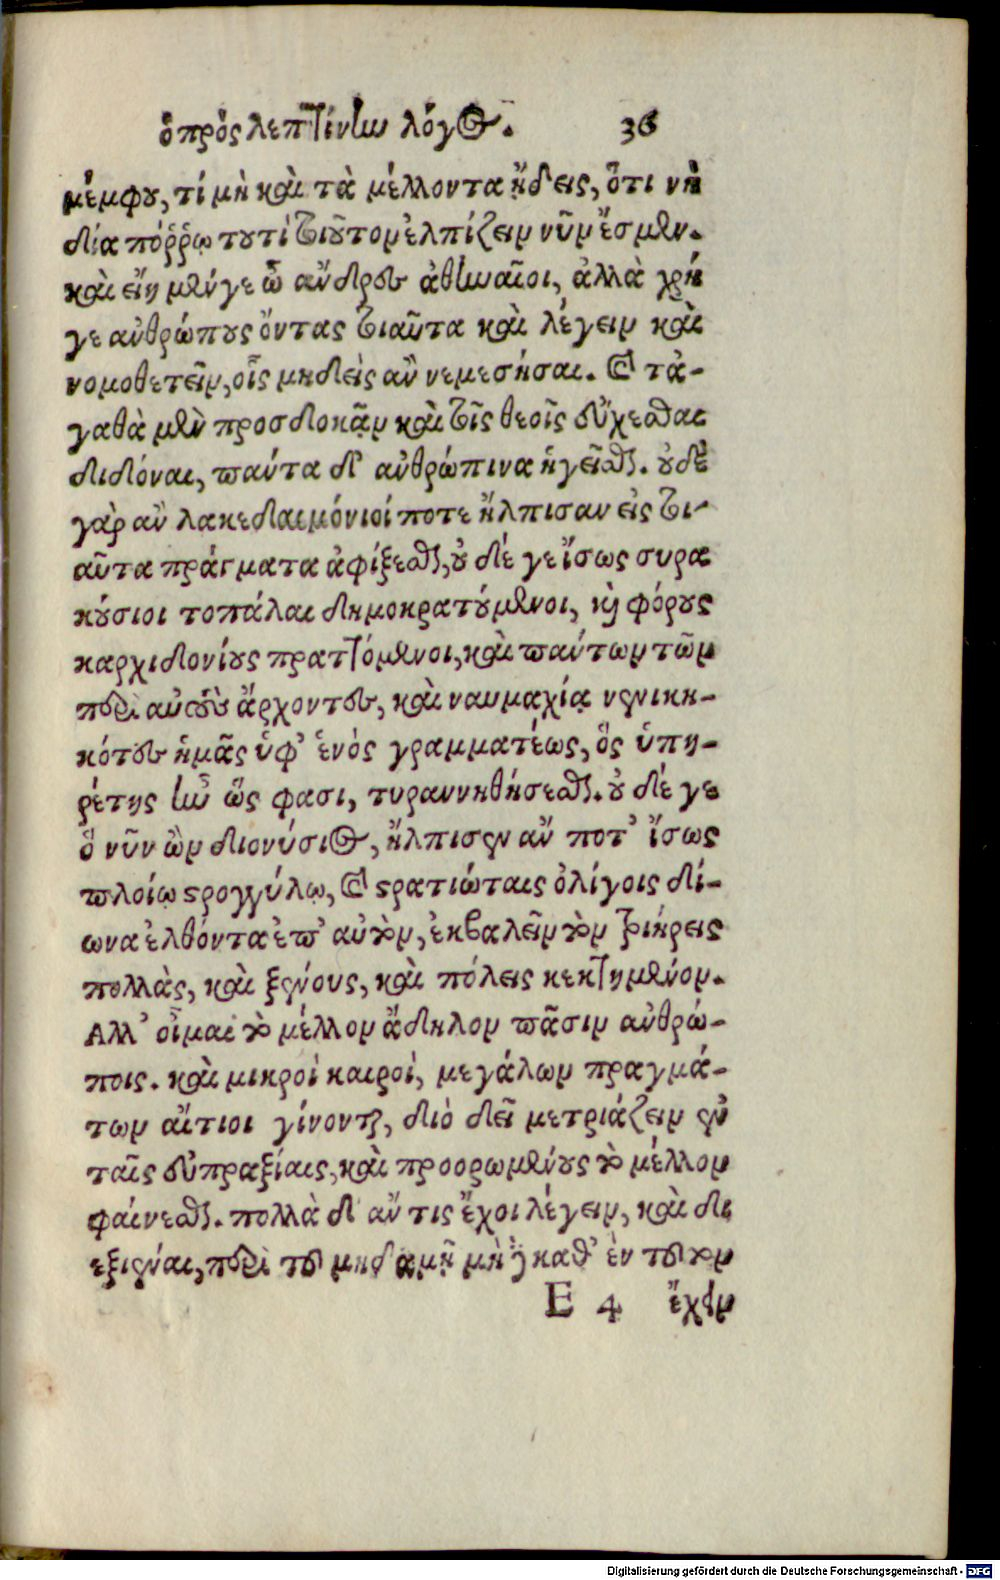 ὁ πρὸς λεπτίνην λόγος. 36
μέμφου, τί μὴ καὶ τὰ μέλλοντα ᾔδεις, ὅτι νὴ
δία πόῤῥω τουτὶ τοιοῦτον ἐλπίζειν νῦν ἔσμεν.
καὶ εἴη μέν γε ὦ ἄνδρες ἀθηναῖοι, ἀλλὰ χρή
γε ἀνθρώπους ὄντας τοιαῦτα καὶ λέγειν καὶ
νομοθετεῖν, οἷς μηδεὶς ἂν νεμεσήσαι. καὶ τἀ-
γαθὰ μὲν προσδοκᾷν καὶ τοῖς θεοῖς εὔχεσθαι
διδόναι, πάντα δ' ἀνθρώπινα ἡγεῖσθαι. οὐδὲ
γὰρ ἂν λακεδαιμόνιοί ποτε ἤλπισαν εἰς τοι-
αῦτα πράγματα ἀφίξεσθαι, οὐ δέ γε ἴσως συρα
κούσιοι τοπάλαι δημοκρατούμενοι, καὶ φόρους
καρχιδονίους πραττόμενοι, καὶ πάντων τῶν
περὶ αὐτοὺς ἄρχοντες, καὶ ναυμαχίᾳ νενικη-
κότες ἡμᾶς ὑφ' ἑνὸς γραμματέως, ὃς ὑπη-
ρέτης ἦν ὥς φασι, τυραννηθήσεσθαι. οὐ δέ γε
ὁ νῦν ὢν διονύσιος, ἤλπισεν ἄν ποτ' ἴσως
πλοίῳ στρογγύλῳ, καὶ στρατιώταις ὀλίγοις δί-
ωνα ἐλθόντα ἐπ' αὐτὸν, ἐκβαλεῖν τὸν τριήρεις
πολλὰς, καὶ ξένους, καὶ πόλεις κεκτημένον.
Αλλ' οἶμαι τὸ μέλλον ἄδηλον πᾶσιν ἀνθρώ-
ποις. καὶ μικροὶ καιροὶ, μεγάλων πραγμά-
των αἴτιοι γίνονται, διὸ δεῖ μετριάζειν ἐν
ταῖς εὐπραξίαις, καὶ προορωμένους τὸ μέλλον
φαίνεσθαι. πολλὰ δ' ἄν τις ἔχοι λέγειν, καὶ δι
εξιέναι, περὶ τοῦ μηδαμῇ μὴ δὲ καθ' ἓν τοῦτον
E 4 ἔχειν
Digitalisierung gefördert durch die Deutsche Forschungsgemeinschaft - DFG